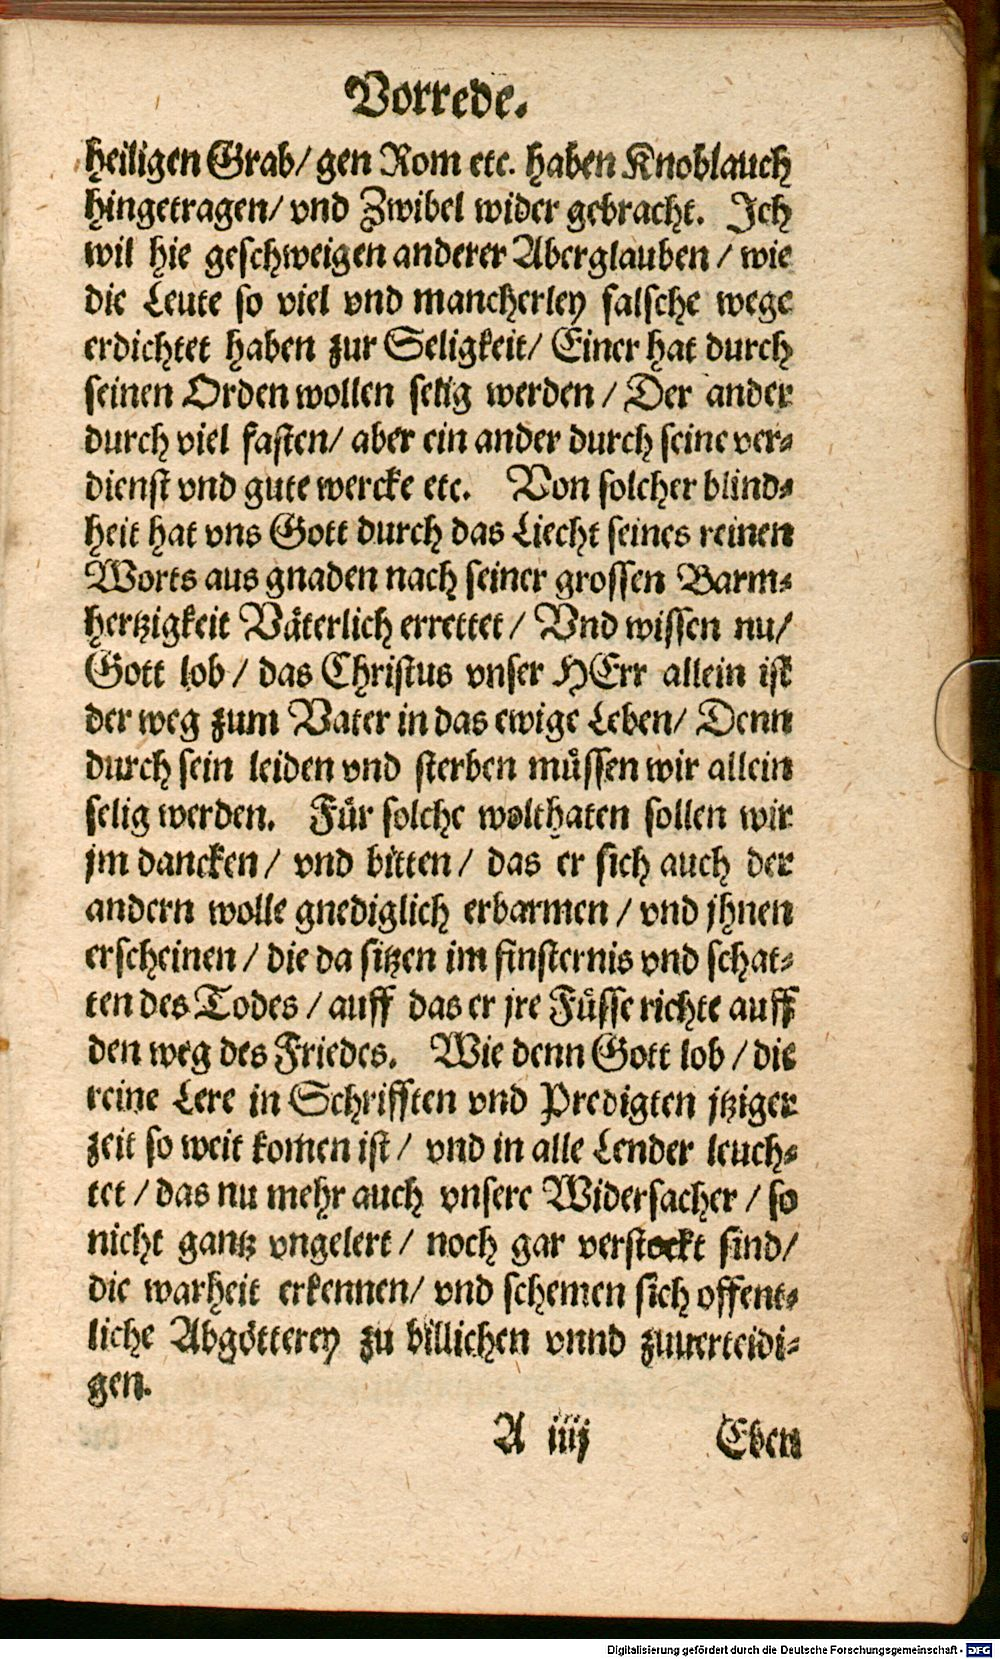 Vorrede.
heiligen Grab/ gen Rom etc. haben Knoblauch
hingetragen/ vnd Zwibel wider gebracht. Ich
wil hie geschweigen anderer Aberglauben / wie
die Leute so viel vnd mancherley falsche wege
erdichtet haben zur Seligkeit/ Einer hat durch
seinen Orden wollen selig werden / Der ander
durch viel fasten/ aber ein ander durch seine ver-
dienst vnd gute wercke etc. Von solcher blind-
heit hat vns Gott durch das Liecht seines reinen
Worts aus gnaden nach seiner grossen Barm-
hertzigkeit Väterlich errettet / Vnd wissen nu/
Gott lob / das Christus vnser HErr allein ist
der weg zum Vater in das ewige Leben/ Denn
durch sein leiden vnd sterben müssen wir allein
selig werden. Für solche wolthaten sollen wir
jm dancken / vnd bitten / das er sich auch der
andern wolle gnediglich erbarmen / vnd jhnen
erscheinen / die da sitzen im finsternis vnd schat-
ten des Todes / auff das er jre Füsse richte auff
den weg des Friedes. Wie denn Gott lob / die
reine Lere in Schrifften vnd Predigten jtziger
zeit so weit komen ist / vnd in alle Lender leuch-
tet / das nu mehr auch vnsere Widersacher / so
nicht gantz vngelert / noch gar verstockt sind/
die warheit erkennen/ vnd schemen sich offent-
liche Abgötterey zu billichen vnnd zuuerteidi-
gen.
A iiij Eben
Digitalisierung gefördert durch die Deutsche Forschungsgemeinschaft - DFG